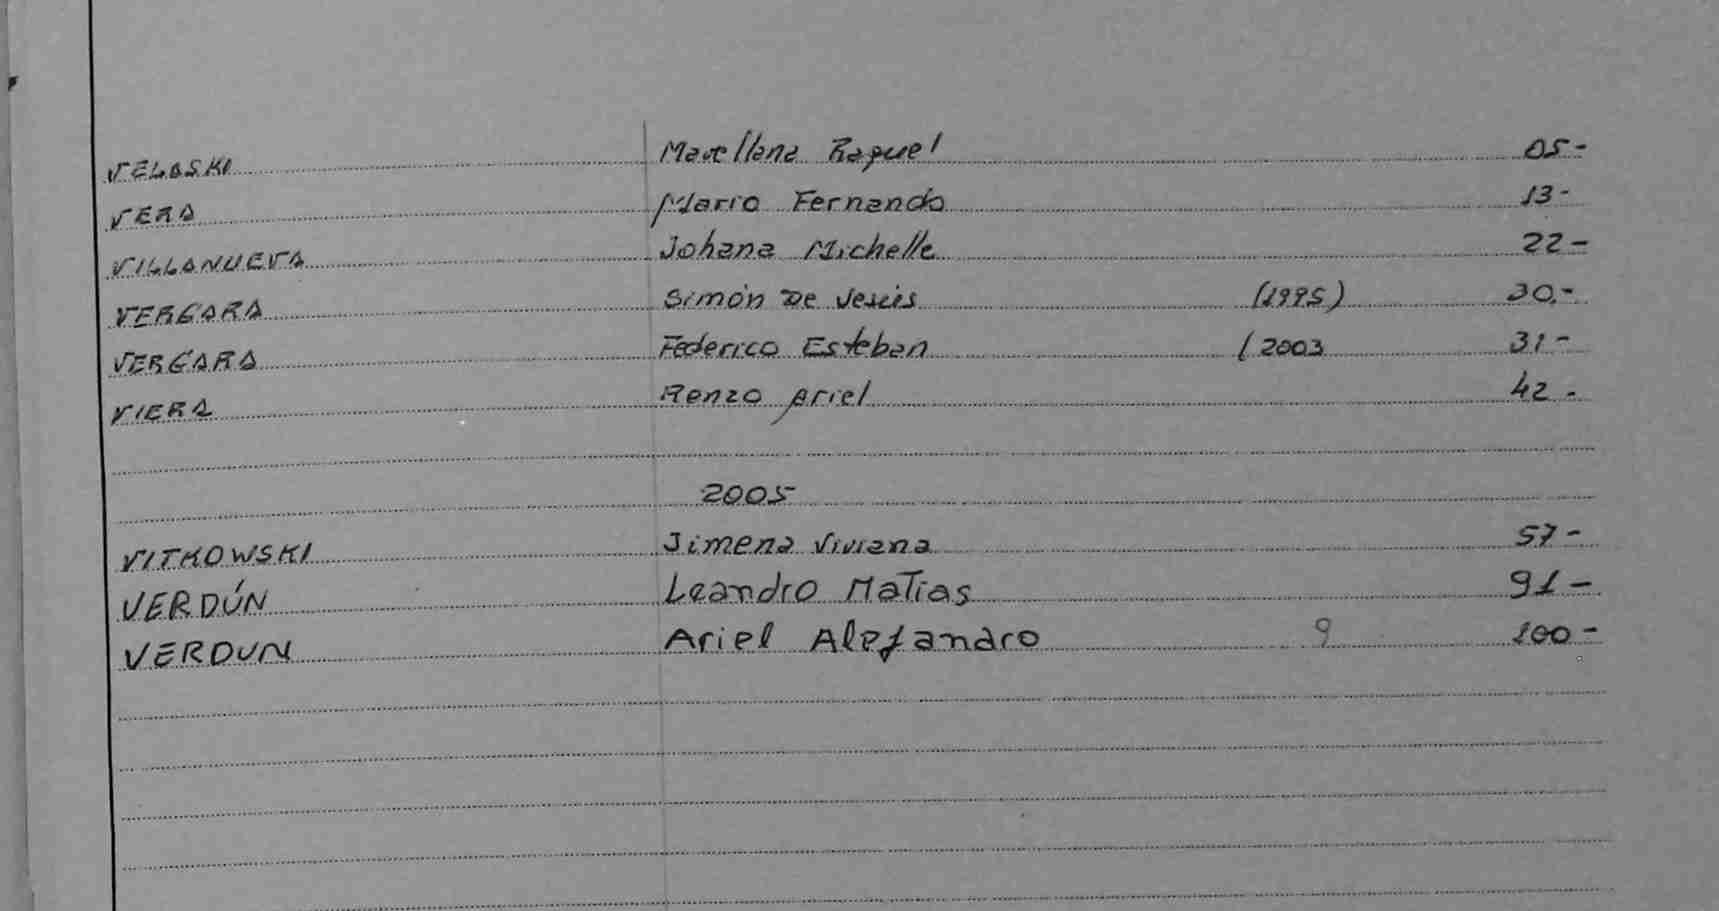 VELOSKI Marcllana Raquel 05-
VERA Mario Fernando 13-
VILLANUEVA Johana Michelle 22-
VERGARA Simón De Jesús (1995) 30.-
VERGARA Federico Esteban (2003 31-
VIERA Renzo Ariel 42-
2005
VITKOWSKI Jimena Viviana 57-
VERDÚN Leandro Matias 91-
VERDUN Ariel Alejandro 9 100-